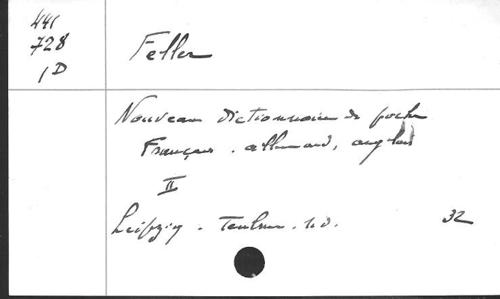 441
728
1D
Feller
Nouveau dictionnaire de poche
Français . allemand, anglais
II
Leipzig . Teubner . s.d. 32